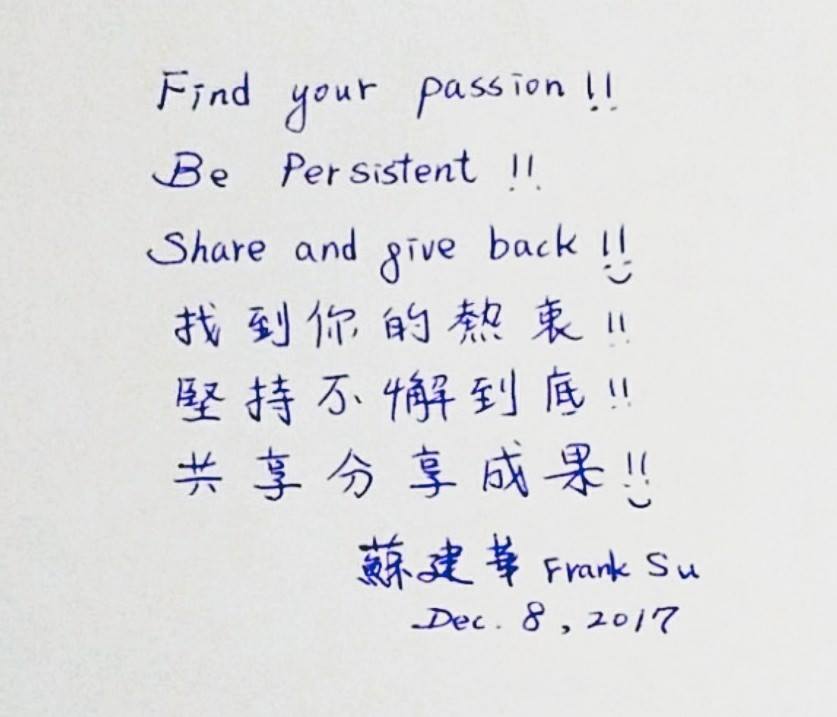 Find your passion !!
Be Persistent !!
Share and give back !!
找到你的熱衷 !!
堅持不懈到底 !!
共享分享成果 !!
蘇建華 Frank Su
Dec. 8, 2017